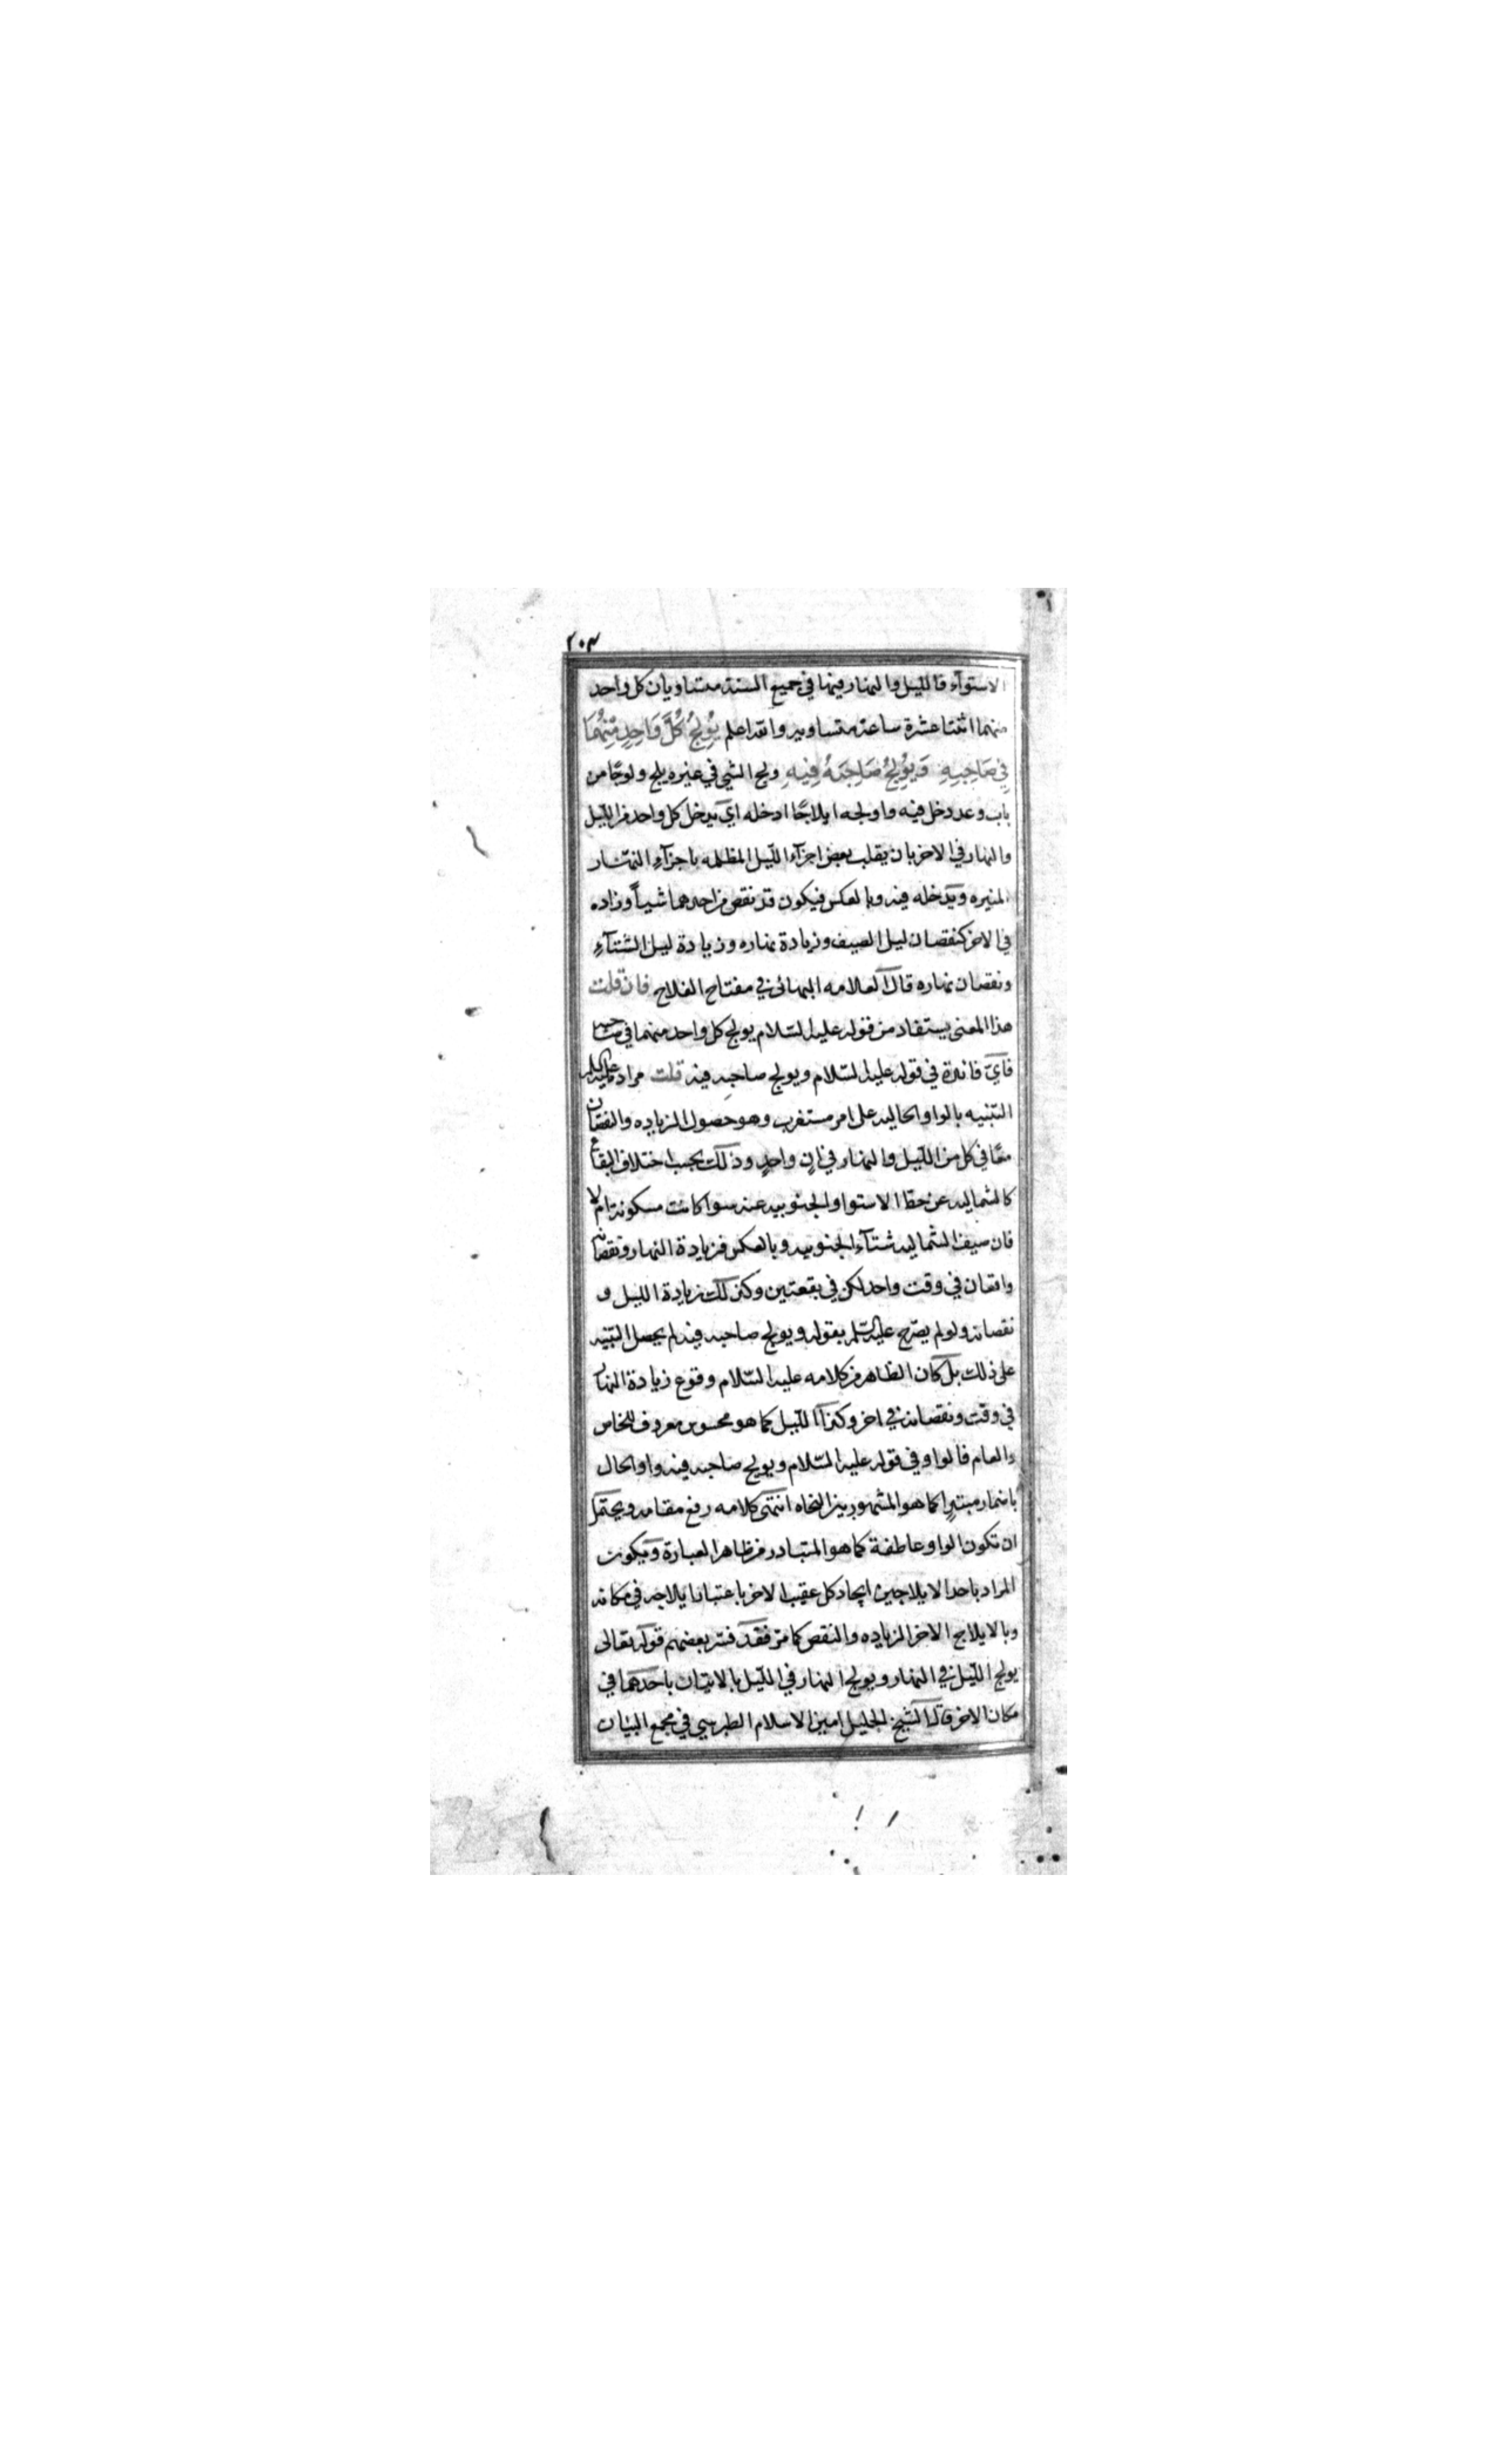 ٢٠٣
الاستوآء فالليل والنهار فيها في جميع السنة متساويان كل واحد
منهما اثنتا عشرة ساعة متساويه والله اعلم يُولِجُ كُلَّ وَاحِدٍ مِنْهُمَا
فِي صَاحِبِهِ وَيُولِجُ صَاحِبَهُ فِيهِ ولج الشي في غيره يلج ولوجًا من
باب وعد دخل فيه واولجه ايلاجًا ادخله اي يدخل كل واحد من الليل
والنهار في الاخر بان يقلب بعض اجزآء الليل المظلمه باجزآء النهار
المنيره ويدخله فيه وبالعكس فيكون قد نقص من احدهما شيأ وزاده
في الاخر كنقصان ليل الصيف وزيادة نهاره وزيادة ليل الشتآءِ
ونقصان نهاره قال العلامه البهائى في مفتاح الفلاح فان قلت
هذا المعنى يستفاد من قوله عليه السّلام يولج كل واحد منهما في صاحبه
فايّ فائدة في قوله عليه السّلام ويولج صاحبه فيه قلت مراده عليه السلم
التنبيه بالواو الحاليه على امر مستغرب وهو حصول الزياده والنقصان
معًا في كل من الليل والنهار في انٍ واحدٍ وذلك بحسب اختلاف البقاع
كالشماليه عن خط الاستوا والجنوبيه عنه سوا كانت مسكونة ام لا
فان صيف الشماليه شتآء الجنوبيه وبالعكس فزيادة النهار ونقصانه
واقعان في وقت واحد لكن في بقعتين وكذلك زيادة الليل و
نقصانه ولو لم يصرّح عليه السّلم بقوله ويولج صاحبه فيه لم يحصل التنبيه
على ذلك بل كان الظاهر من كلامه عليه السّلام وقوع زيادة النهار
في وقت ونقصانه في اخر وكذا الليل كما هو محسوس معروف للخاص
والعام فالواو في قوله عليه السّلام ويولج صاحبه فيه واو الحال
باضمار مبتدإ كما هو المشهور بين النحاه انتهى كلامه رفع مقامه ويحتمل
ان تكون الواو عاطفة كما هو المتبادر من ظاهر العبارة ويكون
المراد باحد الايلاجين ايجاد كل عقيب الاخر باعتبار ايلاجه في مكانه
وبالايلاج الاخر الزياده والنقص كما مرّ فقد فسّر بعضهم قوله تعالى
يولج الليل في النهار ويولج النهار في الليل بالاتيان باحدهما في
مكان الاخر قال الشيخ الجليل امين الاسلام الطبرسي في مجمع البيان